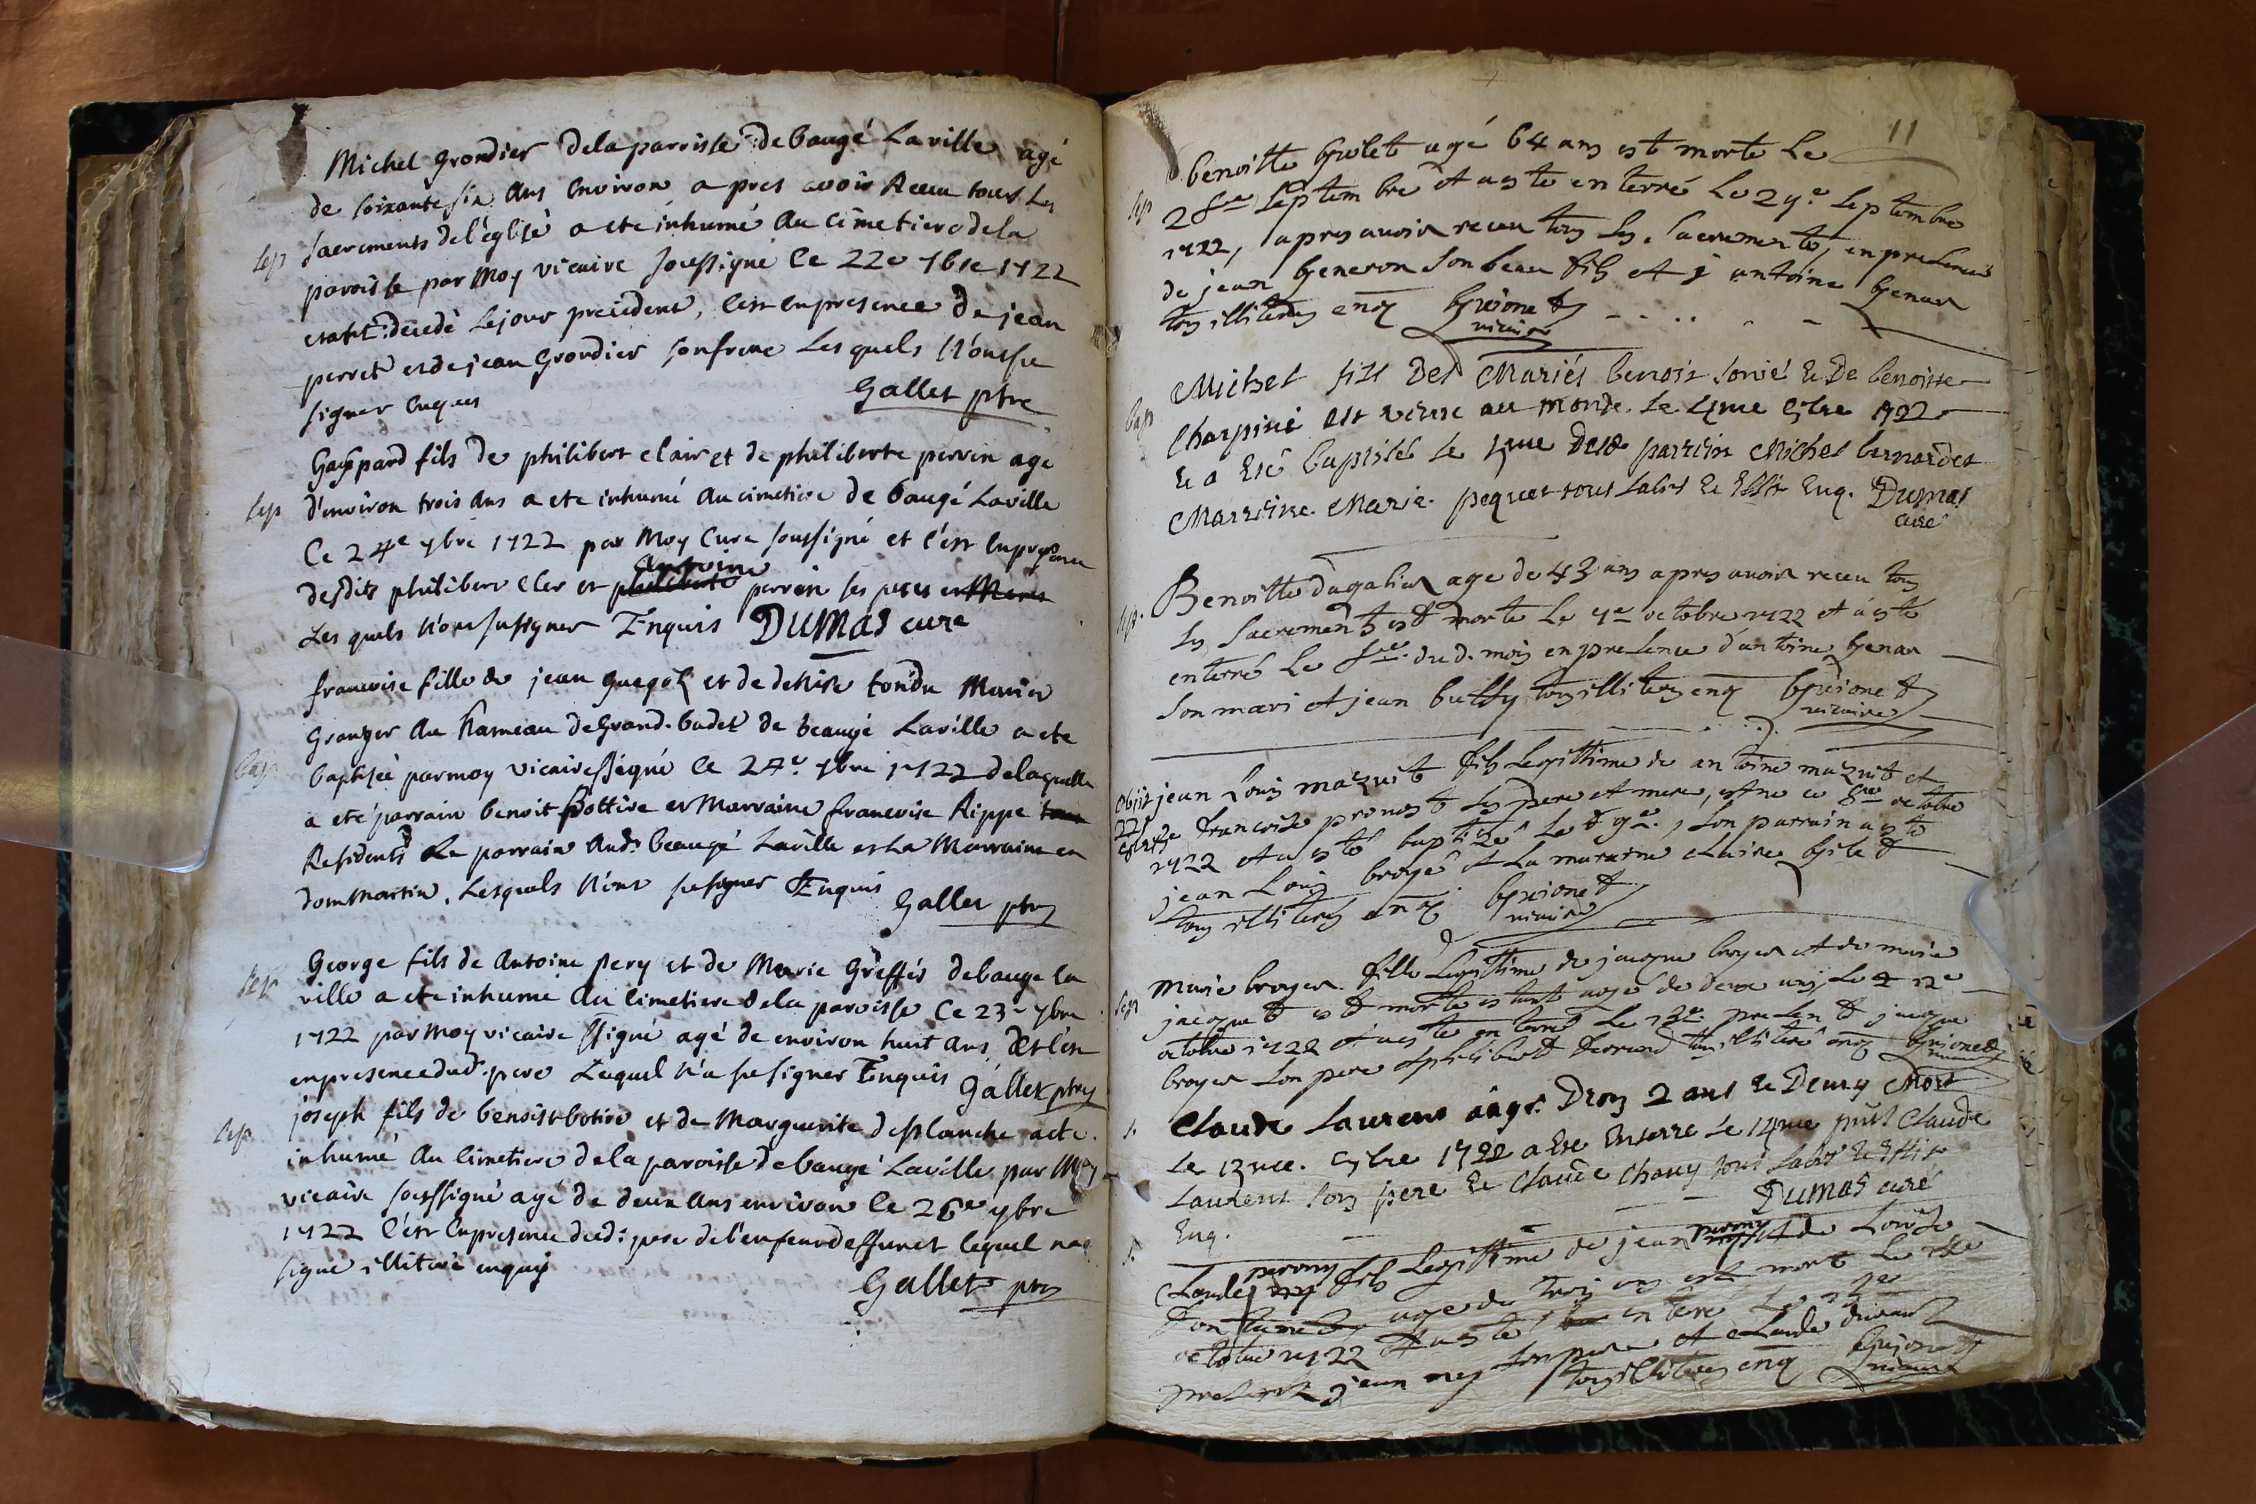 Michel Grondier dela parroisse de baugé Laville agé
de soixante six ans Environ a pres avoir Receu tous Les
Sep
sacrements de l'église a ete inhumé au Cimetiere dela
paroisse par Moy vicaire soussigné Ce 22e 7bre 1722
etant decedé Le jour precedent, C'est En presence de jean
perret et de jean Grondier son frere Les quels N'ont su
signer Enquis
Gallet ptre
Gaspard fils de philibert clair et de philiberte perrin age
Sep
d'environ trois ans a ete inhumé au cimetiere de baugé Laville
Ce 24e 7bre 1722 par Moy Curé soussigné et c'est En presence
desdits philibert cler et philiberte Antoine perrin ses peres et Meres
Les quels N'ont su signer Enquis DUMAS curé
francoise fille de jean et de denise tondu
Granger du hameau de Grand. badet de beaugé Laville a ete
bap
baptisée par moy vicaire ssigné Ce 24e 7bre 1722 de laquelle
a eté parrain benoit bottire et Marraine francoise Rippe
Residents Le parrain aud. beaugé Laville et La Marraine en
dommartin, Lesquels N'ont su signer Enquis
Gallet ptre
George fils de Antoine pery et de Marie Greffés de bauge la
Sep
ville a ete inhumé au cimetiere dela paroisse Ce 23e 7bre
1722 par moy vicaire ssigné agé de environ huit ans, Et c'est
en presence dud. pere Lequel n'a su signer Enquis Gallet ptre
joseph fils de benoist botire et de Marguerite desplanche a ete
Sep
inhumé au cimetiere dela paroisse de baugé Laville par Moy
vicaire soussigné agé de deux ans environ le 26e 7bre
1722 C'est En presence dud: pere de l'enfant deffunct lequel na
signé illitéré enquis
Gallet ptre
11
benoitte agé 64 ans est morte Le
Sep
28e septembre et a esté enterré Le 29e septembre
1722, apres avoir receu tous les sacrements, en presence
de jean Generon son beau fils et antoine Genar
tous illiterés enq Guionet
vicaire
Michel fils Des Mariés benoit Et De benoitte
bap
Charpiné Est venue au monde Le 4me 8bre 1722
Et a Eté baptisée Le parrin Michel bernardet
Marrine Marie pequet tous Enq. DUMAS
curé
Sep.
Benoitte Dagalier age de 43 ans apres avoir receu tous
les sacrements est morte Le 7e octobre 1722 et a esté
enterré Le 8e dud. mois en presence d'antoine Genar
son mari et jean buffy tous illiterés enq Guionet
vicaire
jean Louis mazuit fils Legittime de antoine mazuit et
de francoise prevost ses pere et mere, est né ce 8e octobre
1722 et a esté baptizé Le 9e, son parrain a esté
jean Louis broyé et La marraine Claire Gilet
tous illiterés enq. Guionet
vicaire
Marie broyer fille Legittime de jacque broyer et de marie
Sep
jacquet est morte estant agé de deux ans Le 12e
octobre 1722 et a esté enterré Le 13e present jacque
broyer son pere et philibert ferrand tous illiteré enq Guionet
vicaire
Claude Laurent aâgé Denv 2 ans Et Demy Mort
S.
Le 13me. 8bre 1722 a Ete Enterré Le 14me Claude
Laurent son pere Et Claude Chavy tous
Enq. DUMAS curé
S.
Claude perony fils Legittime de jean perony et de Louise
age de trois ans est mort Le
octobre 1722 et a esté enterré Le 15e
present jean son pere et Claude durand
tous illiterés enq Guionet
vicaire